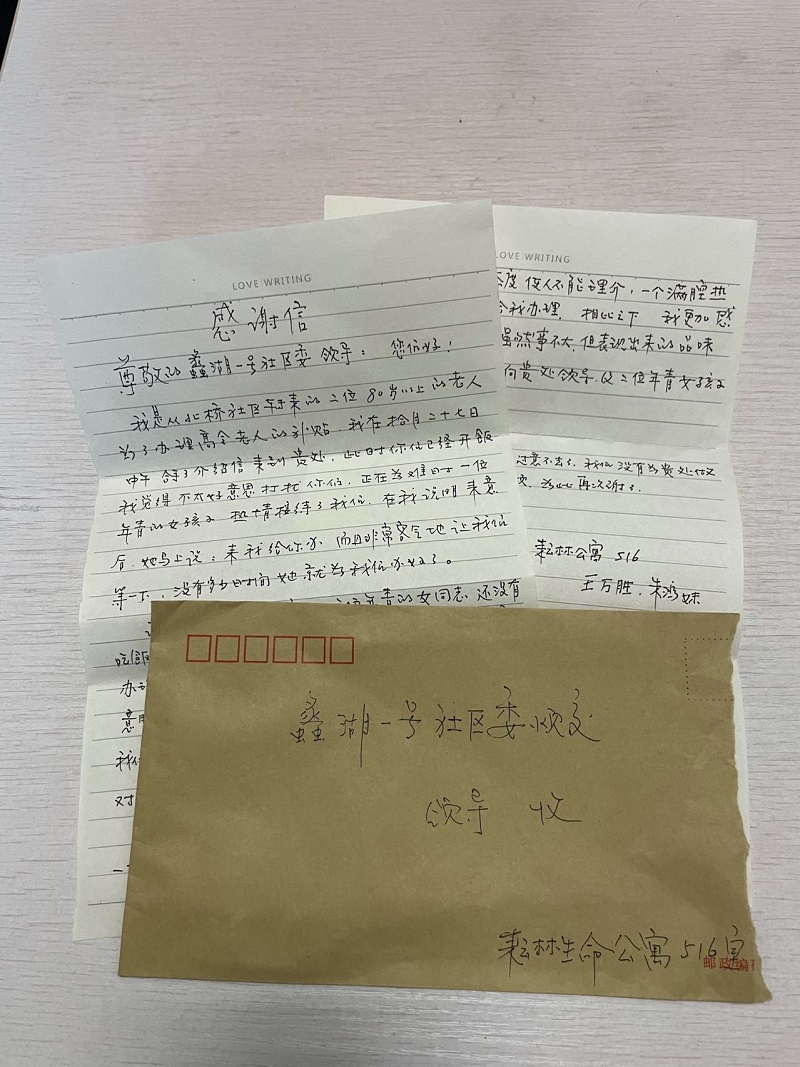 LOVE WRITING
感谢信
尊敬的蠡湖一号社区委 领导：您们好！
我是从北桥社区 来的二位80岁以上的老人
为了办理高令老人的补贴，我在拾月二十七日
中午 介绍信来到贵处，此时你们已经开飯
我觉得不太好意思打扰你们，正在为难时一位
年青的女孩子 热情接待了我们，在我说明来意
后，她马上说：来我给你办，而且非常客气地让我们
等一下，没有多少时间她就为我们办好了。
年青的女同志，还没有
吃飯
办
意
我们
对
一
LOVE WRITING
态度 使人不能理介，一个满腔热
给我办理，相比之下 我更加感
虽然事不大，但表现出来的品味
向贵处领导，及二位年青女孩子
过意不去了，我们没有为贵处
为此再次谢了。
耘林公寓 516
王万胜，朱 妹
蠡湖一号社区委
领导 收
耘林生命公寓516室
邮政编